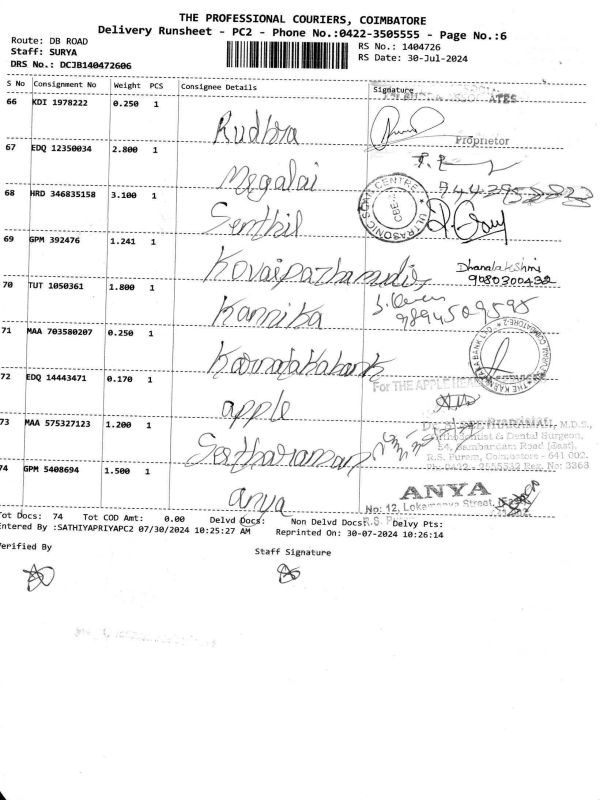 THE PROFESSIONAL COURIERS, COIMBATORE
Delivery Runsheet - PC2 - Phone No.:0422-3505555 - Page No.:6
Route: DB ROAD
Staff: SURYA
DRS No.: DCJB140472606
RS No.: 1404726
RS Date: 30-Jul-2024
S No Consignment No Weight PCS Consignee Details Signature
66 KDI 1978222 0.250 1 Rudhra
Proprietor
67 EDQ 12350034 2.800 1 Megalai
68 HRD 346835158 3.100 1 Senthil
ULTRASONIC SCAN CENTRE
CBE
69 GPM 392476 1.241 1 Kovaipazhamudir
Dhanalakshmi
9080300432
70 TUT 1050361 1.800 1 Kannika
9894509595
71 MAA 703580207 0.250 1 Karnatakabank
72 EDQ 14443471 0.170 1 apple
For THE APPLE
73 MAA 575327123 1.200 1 Seetharaman
M.D.S.,
& Dental Surgeon,
54, Sambandam Road (East),
R.S. Puram, Coimbatore - 641 002.
Ph: 0422 - 2555532 Reg. No: 3368
74 GPM 5408694 1.500 1 anya
ANYA
No: 12, Lokamanya Street,
R.S. P
Tot Docs: 74 Tot COD Amt: 0.00 Delvd Docs: Non Delvd Docs: Delvy Pts:
Entered By :SATHIYAPRIYAPC2 07/30/2024 10:25:27 AM Reprinted On: 30-07-2024 10:26:14
Verified By
Staff Signature